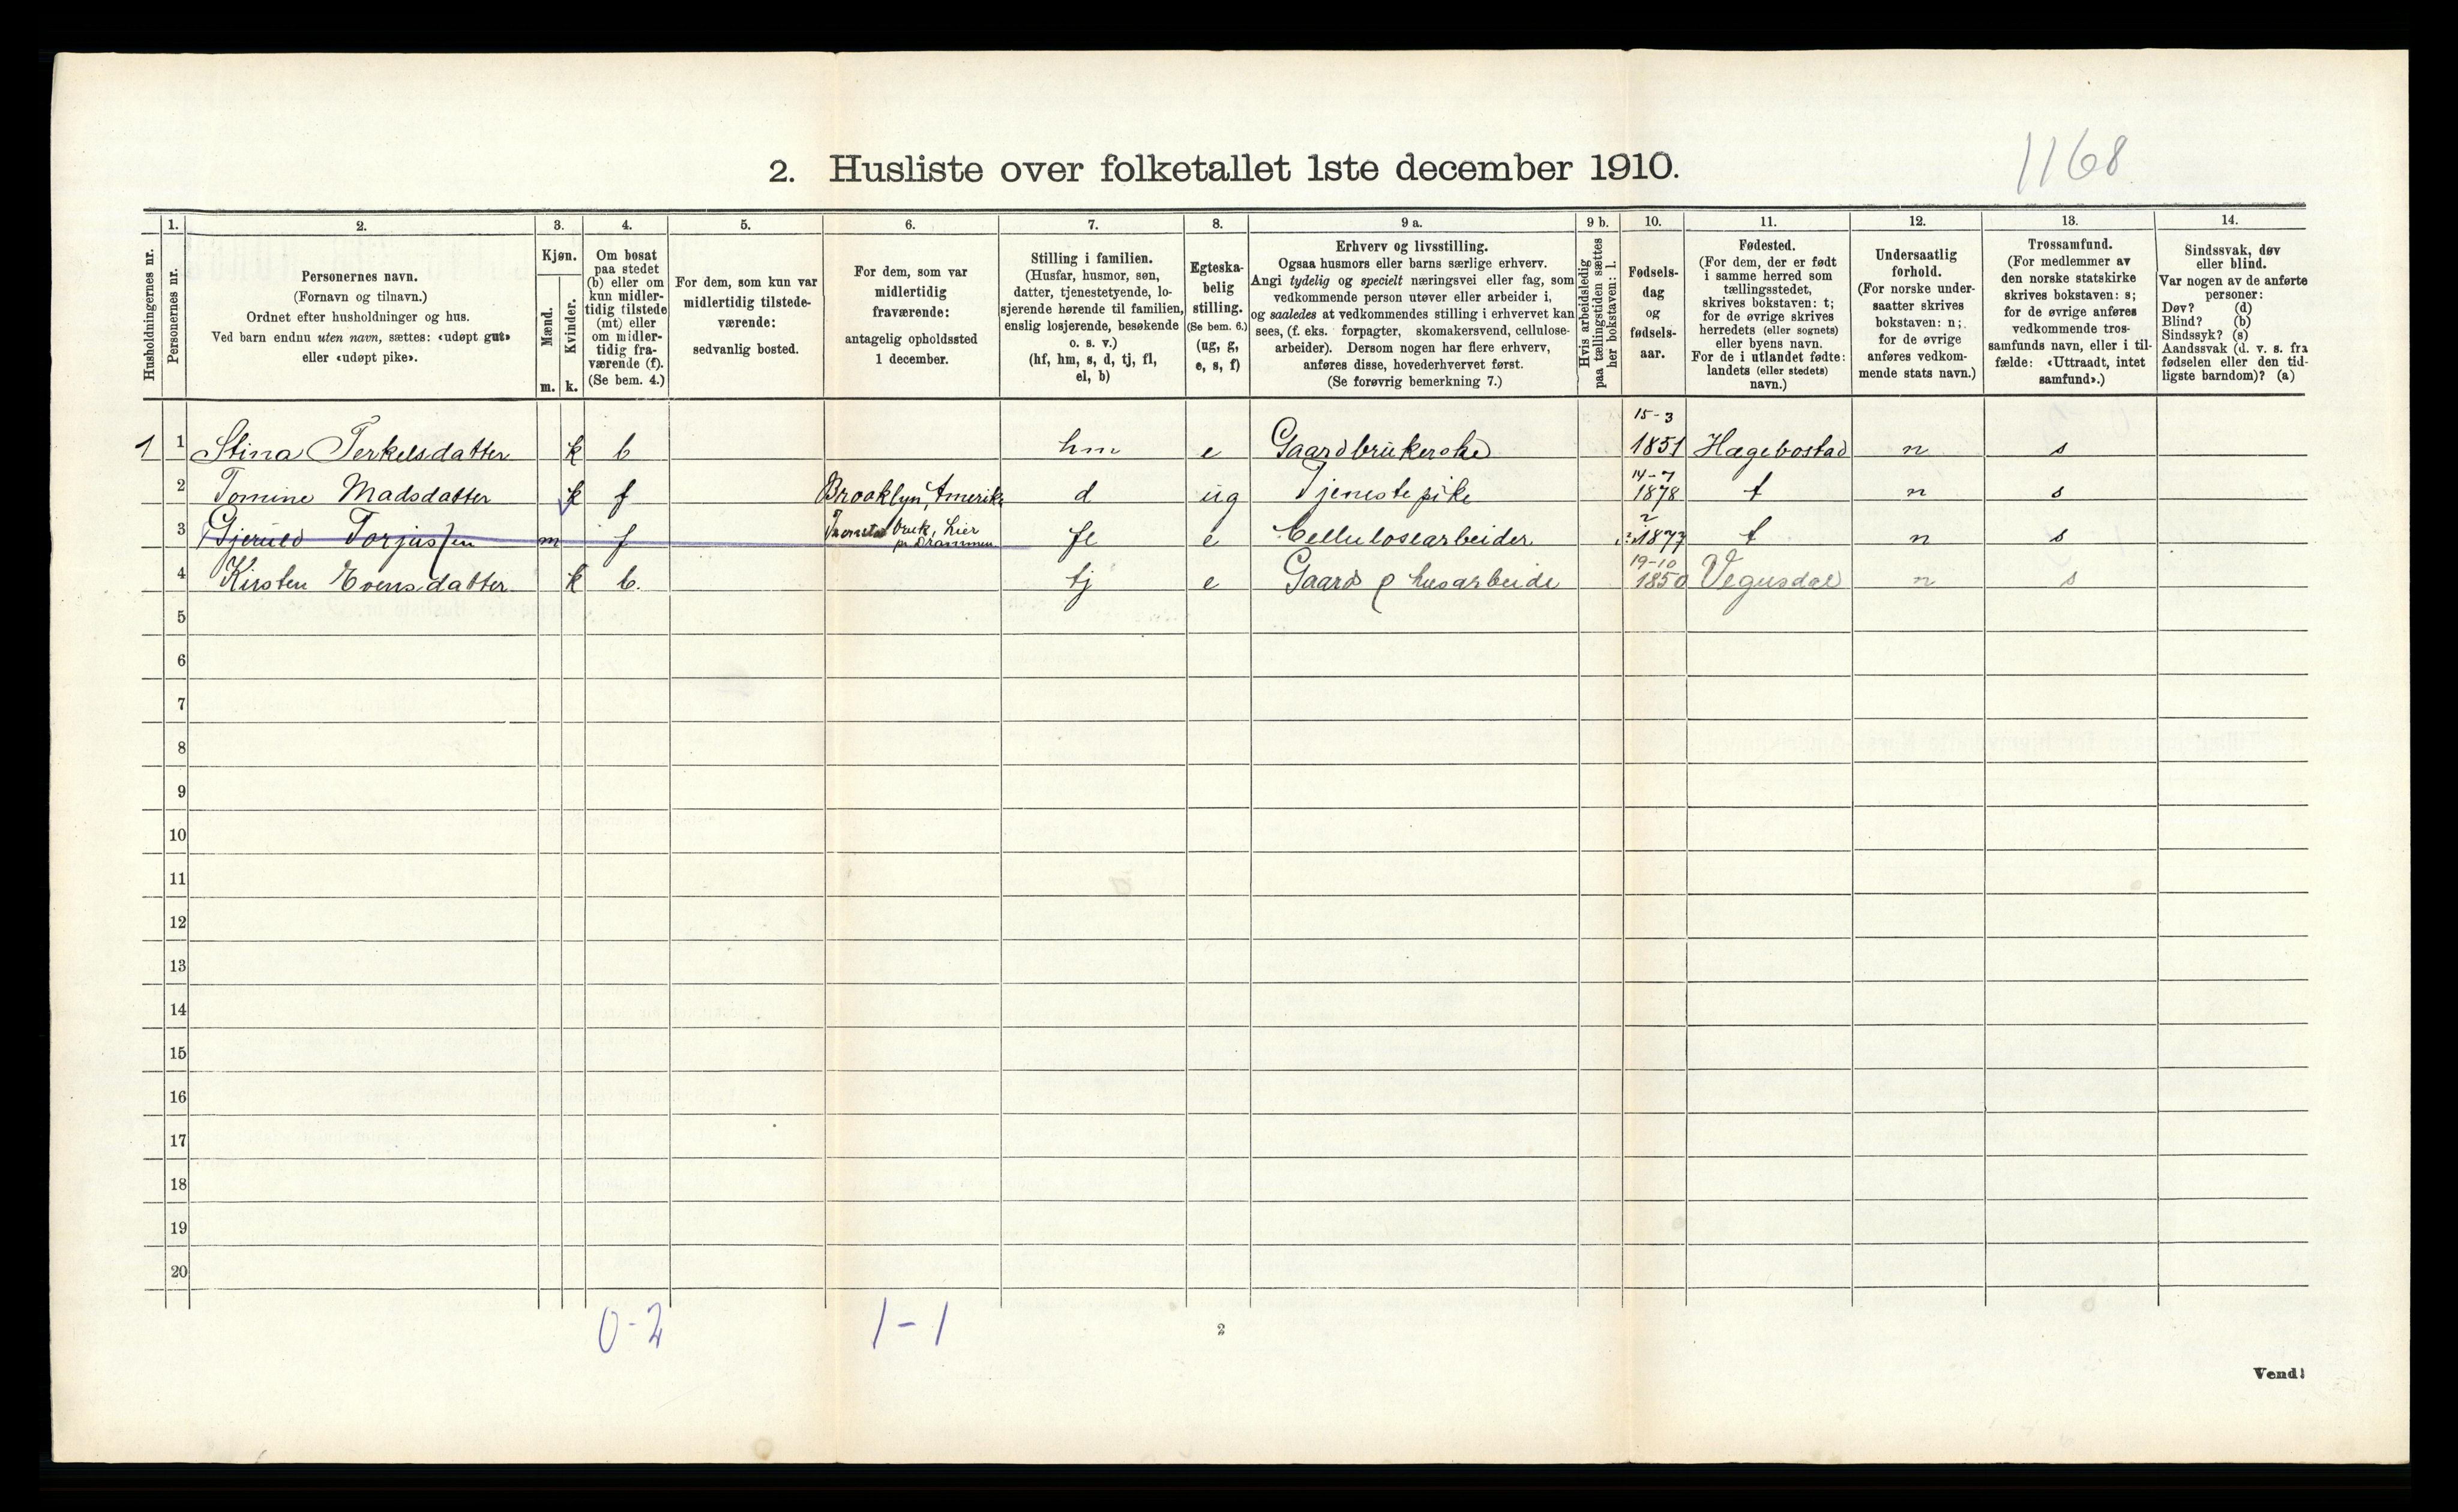 1168
2. Husliste over folketallet 1ste december 1910.
Husholdningernes nr.
1.
Personernes nr.
2.
Personernes navn.
(Fornavn og tilnavn.)
Ordnet efter husholdninger og hus.
Ved barn endnu uten navn, sættes: «udøpt gut»
eller «udøpt pike».
3.
Kjøn.
Mænd.
m.
Kvinder.
k.
4.
Om bosat
paa stedet
(b) eller om
kun midler-
tidig tilstede
(mt) eller
om midler-
tidig fra-
værende (f).
(Se bem. 4.)
5.
For dem, som kun var
midlertidig tilstede-
værende:
sedvanlig bosted.
6.
For dem, som var
midlertidig
fraværende:
antagelig opholdssted
1 december.
7.
Stilling i familien.
(Husfar, husmor, søn,
datter, tjenestetyende, lo-
sjerende hørende til familien,
enslig losjerende, besøkende
o. s. v.)
(hf, hm, s, d, tj, fl,
el, b)
8.
Egteska-
belig
stilling.
(Se bem. 6.)
(ug, g,
e, s, f)
9 a.
Erhverv og livsstilling.
Ogsaa husmors eller barns særlige erhverv.
Angi tydelig og specielt næringsvei eller fag, som
vedkommende person utøver eller arbeider i,
og saaledes at vedkommendes stilling i erhvervet kan
sees, (f. eks. forpagter, skomakersvend, cellulose-
arbeider). Dersom nogen har flere erhverv,
anføres disse, hovederhvervet først.
(Se forøvrig bemerkning 7.)
9 b.
Hvis arbeidsledig
paa tællingstiden sættes
her bokstaven: l.
10.
Fødsels-
dag
og
fødsels-
aar.
11.
Fødested.
(For dem, der er født
i samme herred som
tællingsstedet,
skrives bokstaven: t;
for de øvrige skrives
herredets (eller sognets)
eller byens navn.
For de i utlandet fødte:
landets (eller stedets)
navn.)
12.
Undersaatlig
forhold.
(For norske under-
saatter skrives
bokstaven: n;
for de øvrige
anføres vedkom-
mende stats navn.)
13.
Trossamfund.
(For medlemmer av
den norske statskirke
skrives bokstaven: s;
for de øvrige anføres
vedkommende tros-
samfunds navn, eller i til-
fælde: «Uttraadt, intet
samfund».)
14.
Sindssvak, døv
eller blind.
Var nogen av de anførte
personer:
Døv? (d)
Blind? (b)
Sindssyk? (s)
Aandssvak (d. v. s. fra
fødselen eller den tid-
ligste barndom)? (a)
1 1 Stina Terkelsdatter k b hm e Gaardbrukerske 15-3 1851 Hægebostad n s
2 Tomine Madsdatter k f Brooklyn, Amerika d ug Tjenestepike 14-7 1878 t n s
3 Torjussen m f Bruk, Lier pr Drammen fl e Cellulosearbeider 1877 t n s
4 Kirsten Evensdatter k b. tj e Gaards & husarbeide 19-10 1850 Vegusdal n s
5
6
7
8
9
10
11
12
13
14
15
16
17
18
19
20
0-2
1-1
2
Vend!